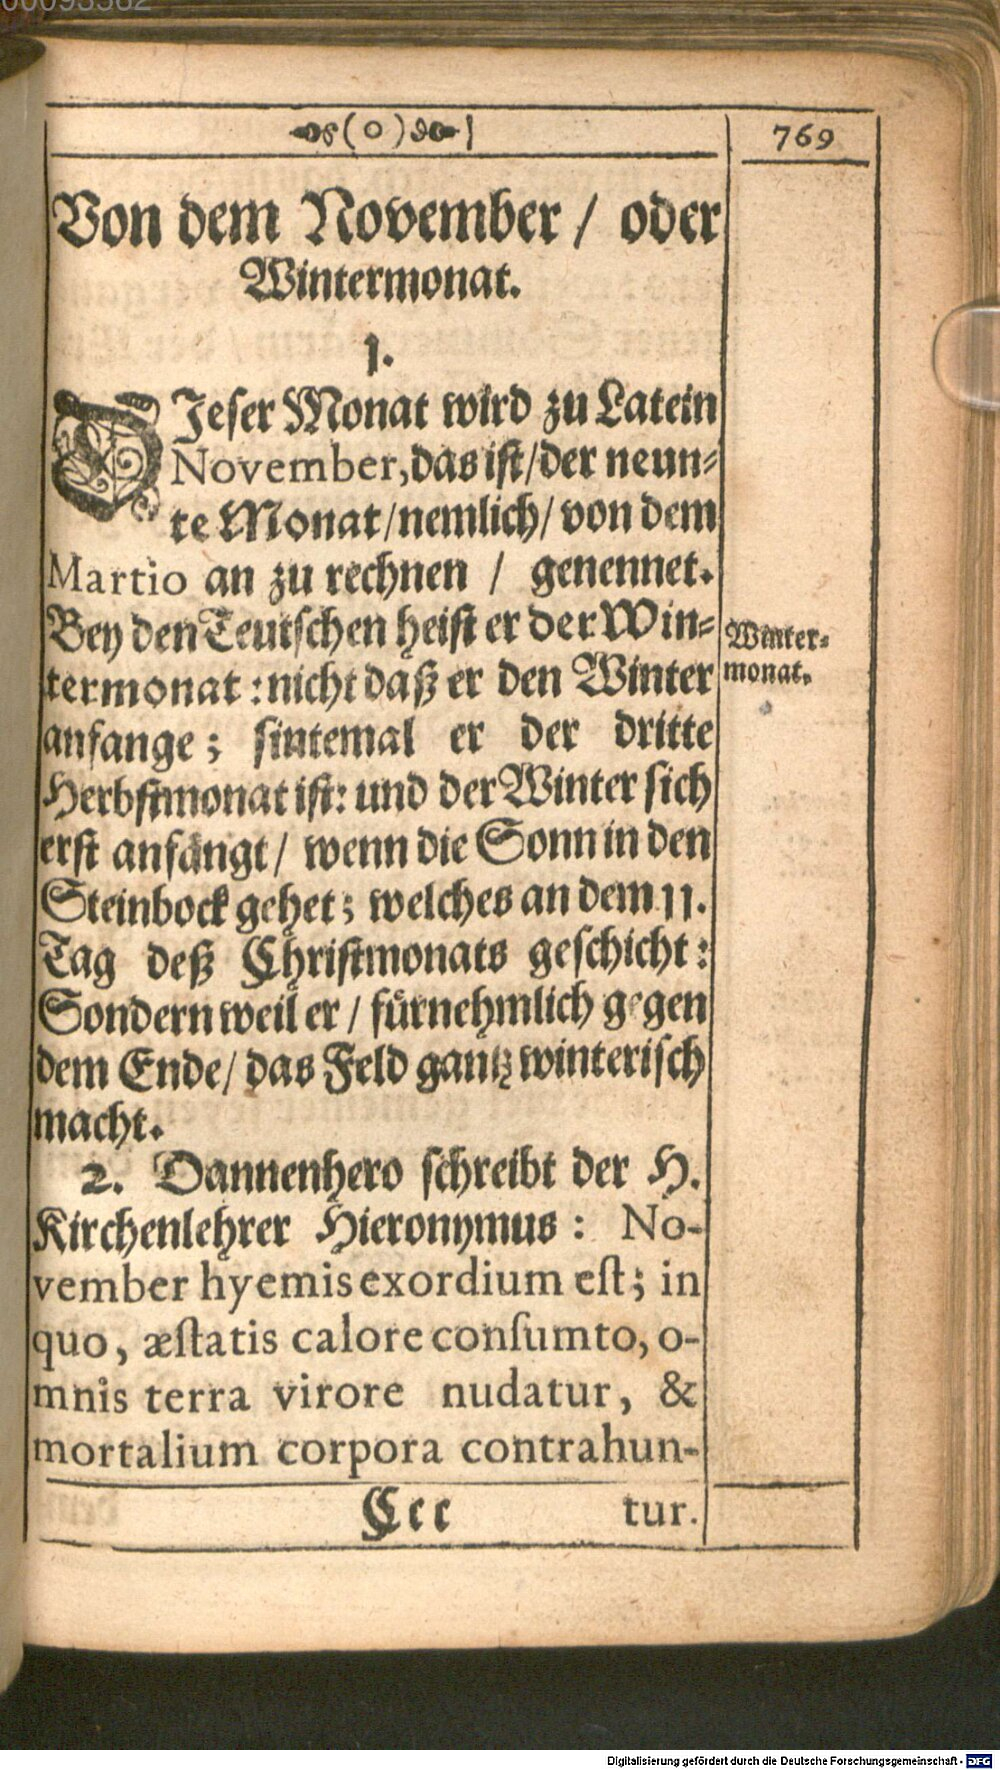 (o)
769
Von dem November / oder
Wintermonat.
1.
DIeser Monat wird zu Latein
November, das ist / der neun-
te Monat / nemlich / von dem
Martio an zu rechnen / genennet.
Bey den Teutschen heist er der Win-
termonat: nicht daß er den Winter
anfange; sintemal er der dritte
Herbstmonat ist: und der Winter sich
erst anfängt / wenn die Sonn in den
Steinbock gehet; welches an dem 11.
Tag deß Christmonats geschicht:
Sondern weil er / fürnehmlich gegen
dem Ende / das Feld gantz winterisch
macht.
Winter-
monat.
2. Dannenhero schreibt der H.
Kirchenlehrer Hieronymus: No-
vember hyemis exordium est; in
quo, æstatis calore consumto, o-
mnis terra virore nudatur, &
mortalium corpora contrahun-
Ccc tur.
Digitalisierung gefördert durch die Deutsche Forschungsgemeinschaft - DFG